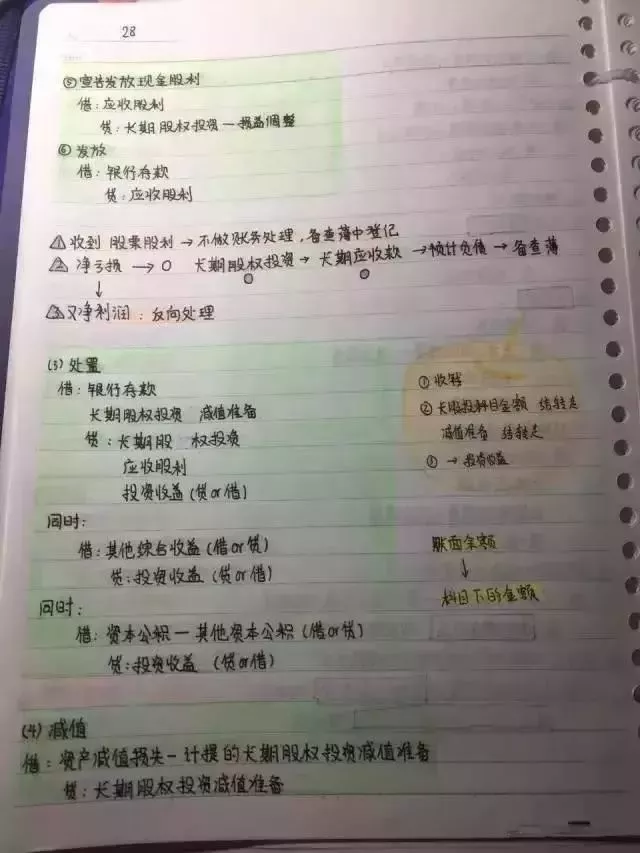 28
⑤宣告发放现金股利
借:应收股利
贷:长期股权投资—损益调整
⑥发放
借:银行存款
贷:应收股利
△1 收到 股票股利→不做账务处理,备查薄中登记
△2 净亏损 → 0 长期股权投资→长期应收款→预计负债→备查薄
0 0
↓
△3 又净利润:反向处理
(3)处置
借:银行存款
长期股权投资 减值准备
贷:长期股 权投资
应收股利
投资收益(贷or借)
①收钱
②长股投科目金额 结转走
减值准备 结转走
③→投资收益
同时:
借:其他综合收益(借or贷)
贷:投资收益(贷or借)
账面余额
↓
科目下的金额
同时:
借:资本公积—其他资本公积(借or贷)
贷:投资收益 (贷or借)
(4)减值
借:资产减值损失—计提的长期股权投资减值准备
贷:长期股权投资减值准备